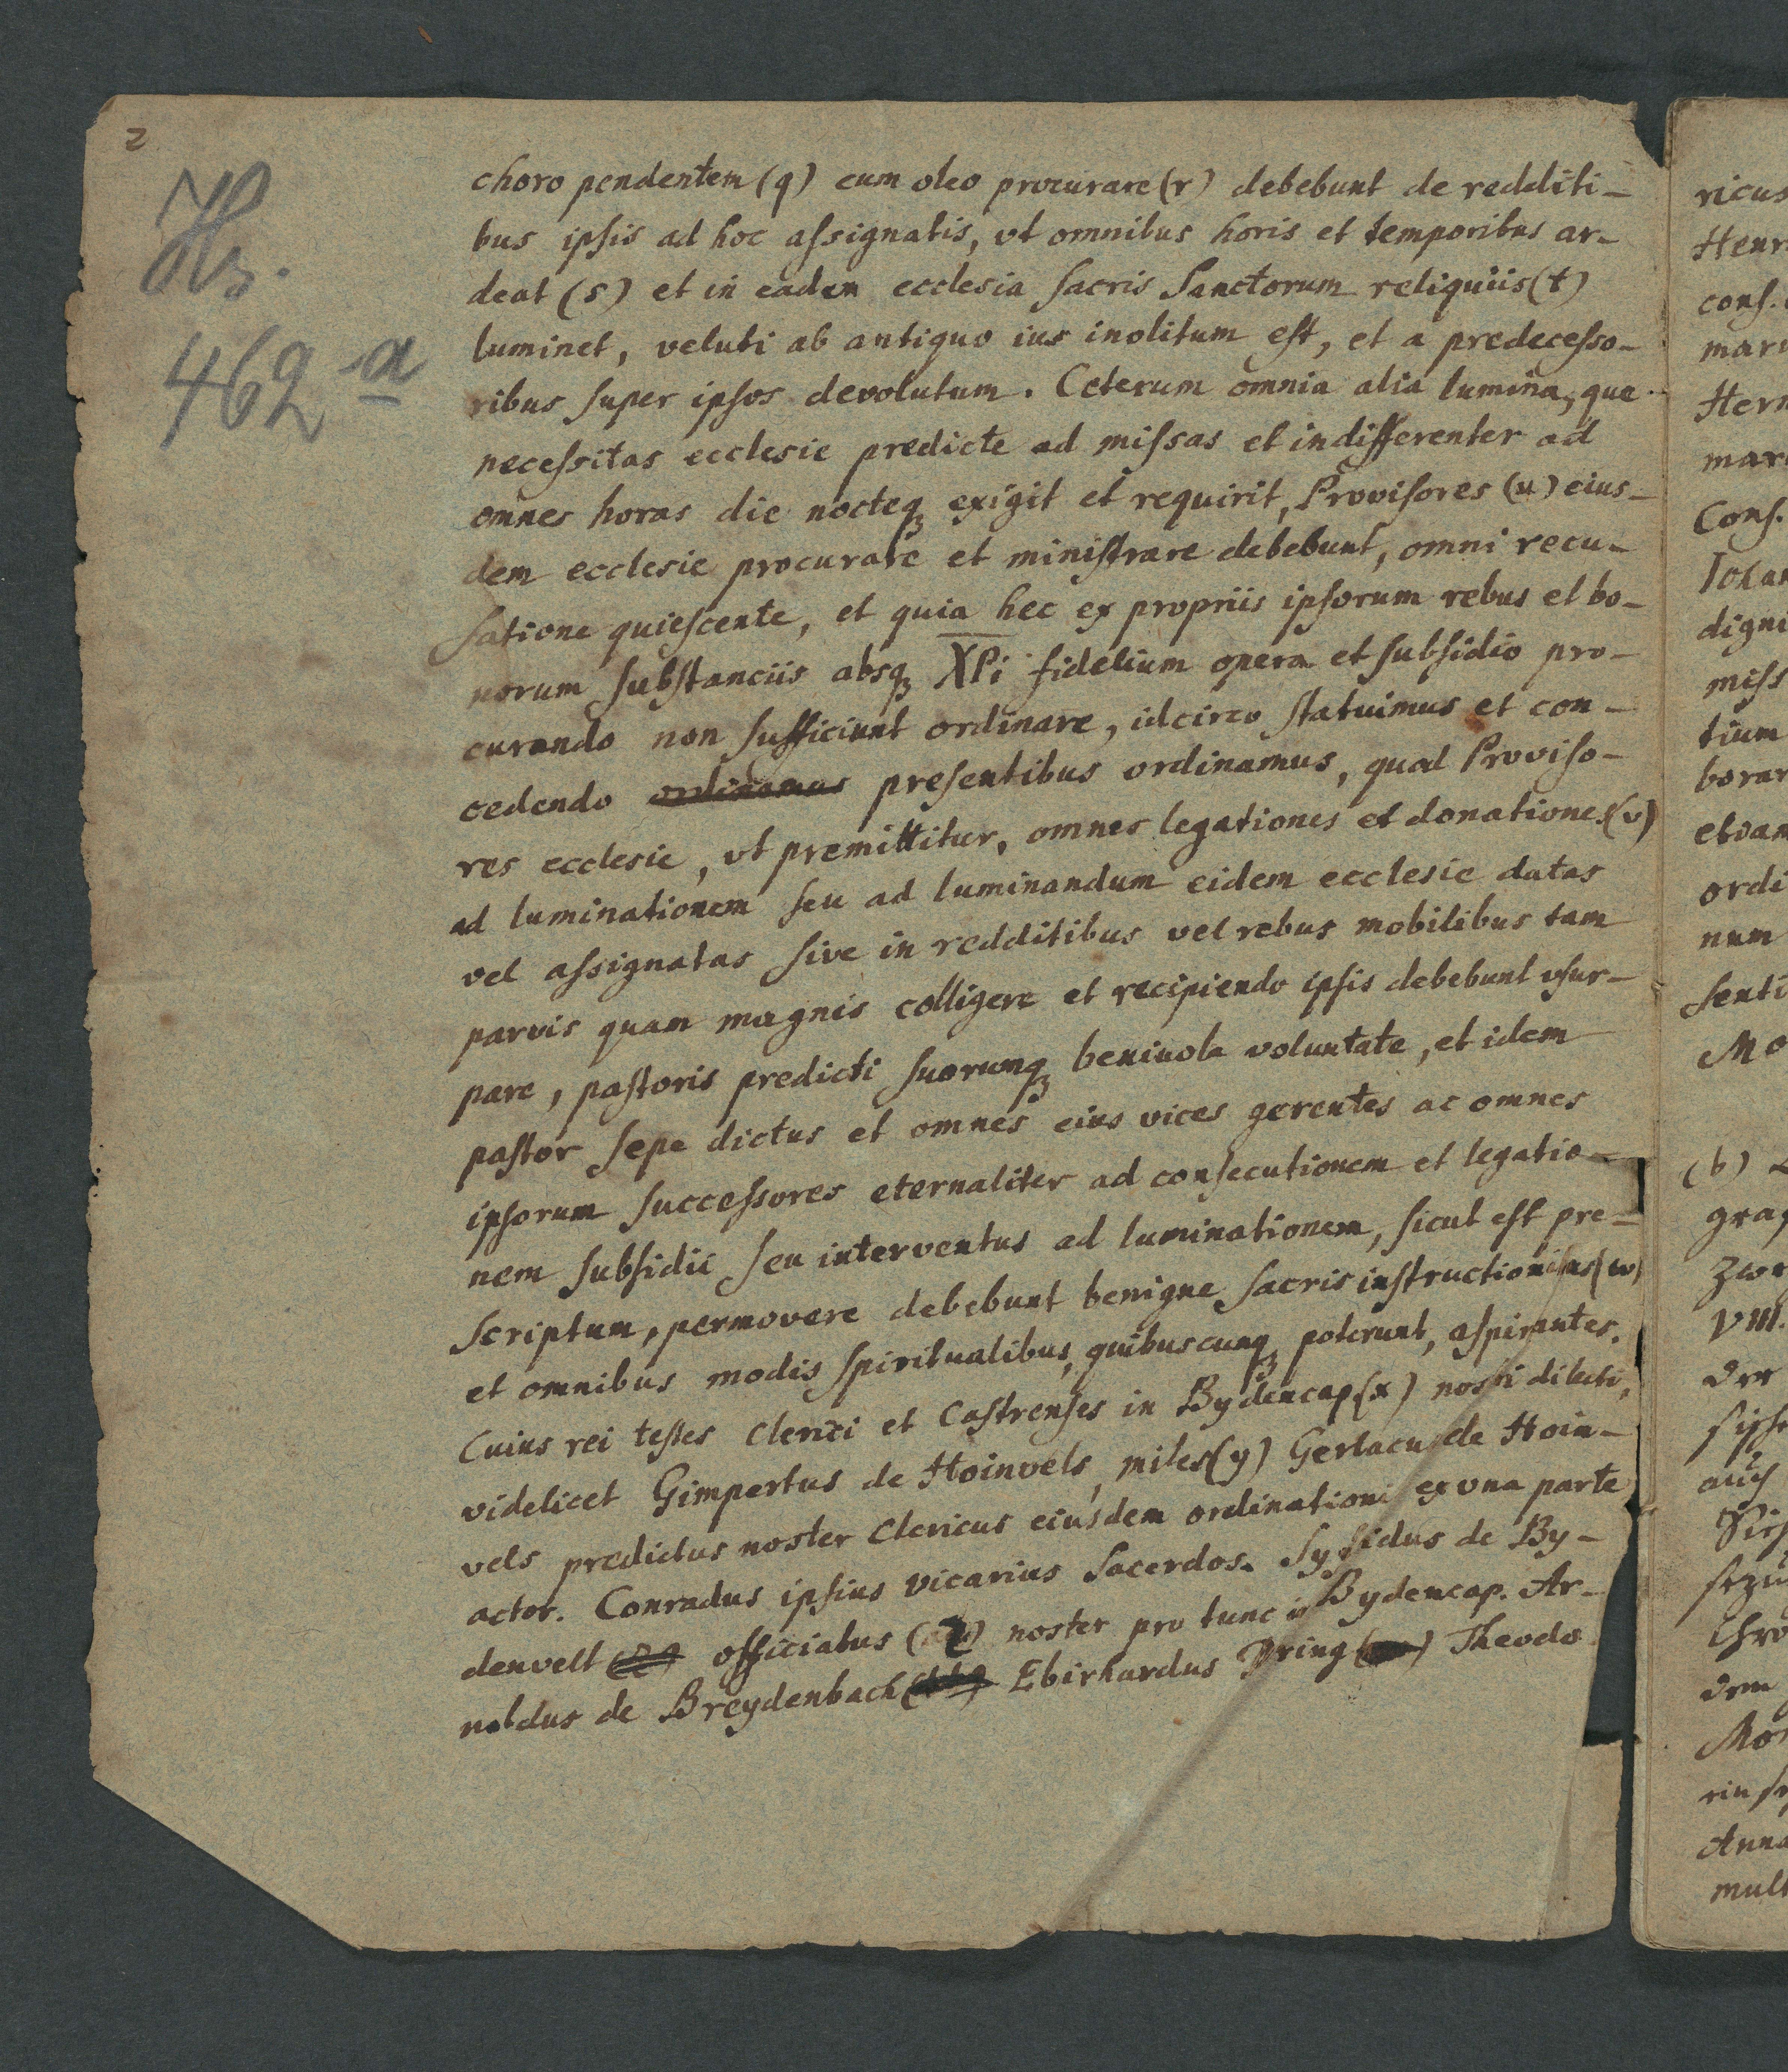 2
Hs.
462 a
choro pendentem (q) cum oleo procurare (r) debebunt de redditi-
bus ipsis ad hoc assignatis, vt omnibus horis et temporibus ar-
deat (s) et in eadem ecclesia sacris Sanctorum reliquiis (t)
luminet, veluti ab antiquo ius inolitum est, et a predecesso-
ribus super ipsos devolutum. Ceterum omnia alia lumina, que
necessitas ecclesie predicte ad missas et indifferenter ad
omnes horas die nocteqꝫ exigit et requirit, Provisores (u) eius-
dem ecclesie procurare et ministrare debebunt, omni recu-
satione quiescente, et quia hec ex propriis ipsorum rebus et bo-
norum substanciis absqꝫ XPi fidelium opera et subsidio pro-
curando non sufficiunt ordinare, idcirco statuimus et con-
cedendo ordinamus presentibus ordinamus, quod Proviso-
res ecclesie, vt premittitur, omnes legationes et donationes (v)
ad luminationem seu ad luminandum eidem ecclesie datas
vel assignatas sive in redditibus vel rebus mobilibus tam
parvis quam magnis colligere et recipiendo ipsis debebunt vsur-
pare, pastoris predicti suorumqꝫ benivola voluntate, et idem
pastor sepe dictus et omnes eius vices gerentes ac omnes
ipsorum successores eternaliter ad consecutionem et legatio-
nem subsidii seu interventus ad luminationem, sicut est pre-
scriptum, permovere debebunt benigne sacris instructionibus (w)
et omnibus modis spiritualibus, quibuscunqꝫ poterunt, aspirantes.
Cuius rei testes Clerici et Castrenses in Bydencap (x) nostri dilecti,
videlicet Gimpertus de Hoinvels, miles (y) Gerlacus de Hoin-
vels predictus noster Clericus eiusdem ordinationis ex vna parte
actor. Conradus ipsius vicarius Sacerdos. Syfridus de By-
denvelt officiatus (z) noster pro tunc in Bydencap. Ar-
noldus de Breydenbach Ebirhardus Dring Theodo
ricus
Henr
cons.
mar
Her
mar
Cons.
Joha
digni
miss
tium
borar
ordi
num
senti
Mo
(b)
gra
VIII.
der
auch
dem
Anna
mult